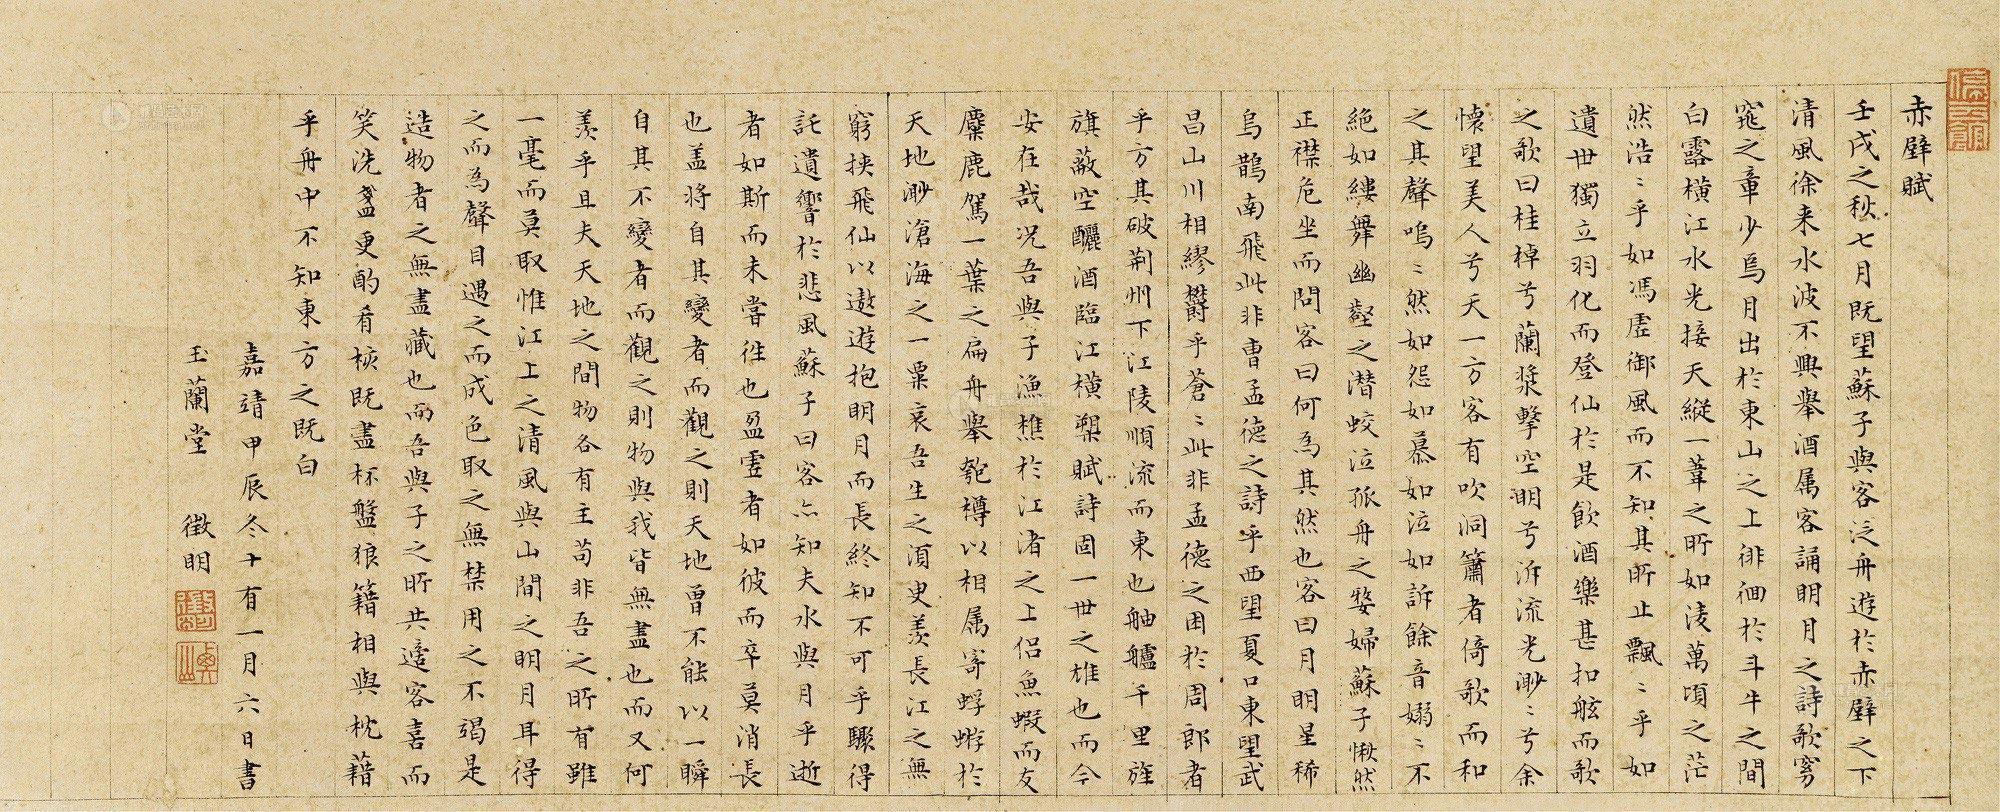 赤壁賦
壬戌之秋七月既望蘇子與客泛舟遊於赤壁之下
清風徐来水波不興舉酒属客誦明月之詩歌窈
窕之章少焉月出於東山之上徘徊於斗牛之間
白露横江水光接天縱一葦之所如淩萬頃之茫
然浩〻乎如馮虛御風而不知其所止飄〻乎如
遺世獨立羽化而登仙於是飲酒樂甚扣舷而歌
之歌曰桂棹兮蘭槳擊空明兮泝流光渺〻兮余
懷望美人兮天一方客有吹洞簫者倚歌而和
之其聲嗚〻然如怨如慕如泣如訴餘音嫋〻不
絶如縷舞幽壑之潜蛟泣孤舟之嫠婦蘇子愀然
正襟危坐而問客曰何為其然也客曰月明星稀
烏鵲南飛此非曹孟德之詩乎西望夏口東望武
昌山川相繆欝乎蒼〻此非孟德之困於周郎者
乎方其破荆州下江陵順流而東也舳艫千里旌
旗蔽空釃酒臨江横槊賦詩固一世之雄也而今
安在哉况吾與子漁樵於江渚之上侣魚蝦而友
麋鹿駕一葉之扁舟舉匏樽以相属寄蜉蝣於
天地渺滄海之一粟哀吾生之須臾羨長江之無
窮挾飛仙以遨遊抱明月而長終知不可乎驟得
託遺響於悲風蘇子曰客亦知夫水與月乎逝
者如斯而未嘗往也盈虛者如彼而卒莫消長
也盖將自其變者而觀之則天地曾不能以一瞬
自其不變者而觀之則物與我皆無盡也而又何
羨乎且夫天地之間物各有主苟非吾之所有雖
一毫而莫取惟江上之清風與山間之明月耳得
之而為聲目遇之而成色取之無禁用之不竭是
造物者之無盡藏也而吾與子之所共適客喜而
笑洗盞更酌肴核既盡杯盤狼籍相與枕藉
乎舟中不知東方之既白
嘉靖甲辰冬十有一月六日書
玉蘭堂 徵明